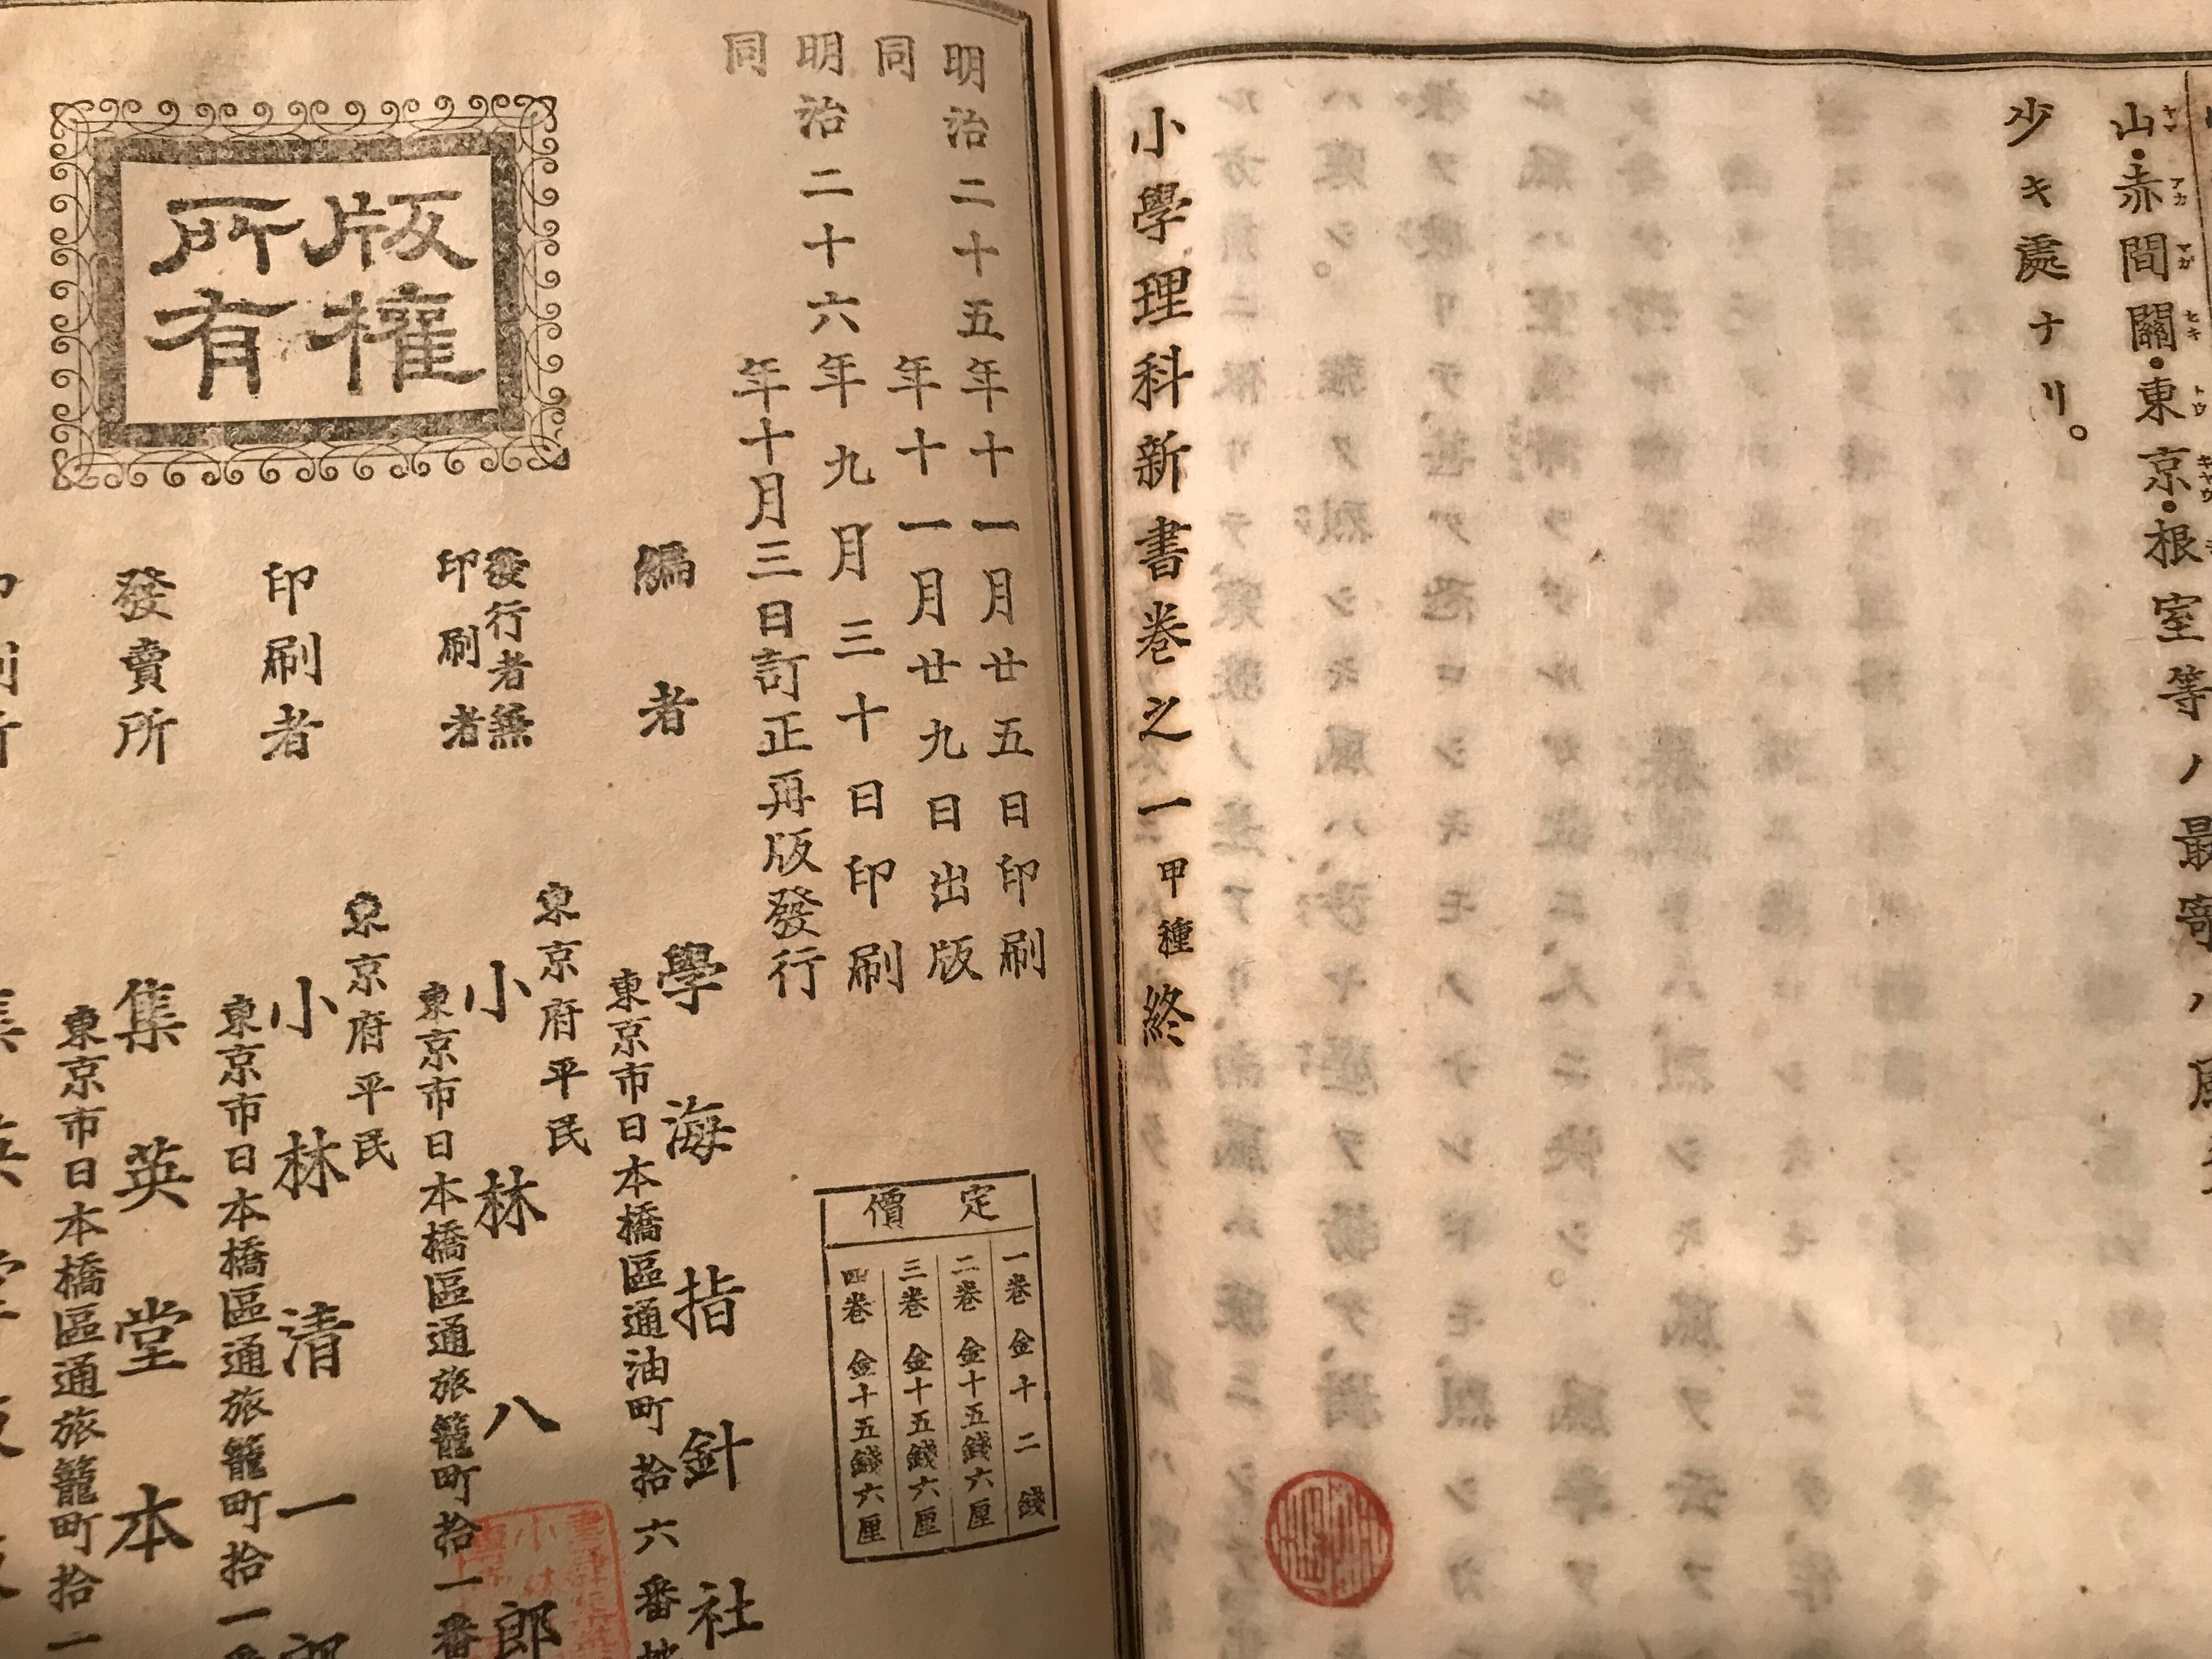 山・赤間關・東京・根室等ハ最寄ハ
少キ處ナリ。
小學理科新書巻之一 甲種 終
明治二十五年十一月廿五日印刷
同年十一月廿九日出版
明治二十六年九月三十日印刷
同年十月三日訂正再版發行
定價
一巻 金十二錢
二巻 金十五錢六厘
三巻 金十五錢六厘
四巻 金十五錢六厘
編者 學海指針社
東京市日本橋區通油町拾六番地
東京府平民
發行者兼印刷者 小林八郎
東京市日本橋區通旅籠町拾一番
東京府平民
印刷者 小林清一郎
東京市日本橋區通旅籠町拾一番
發賣所 集英堂本
東京市日本橋區通旅籠町拾一
印刷所 集英堂
版權所有